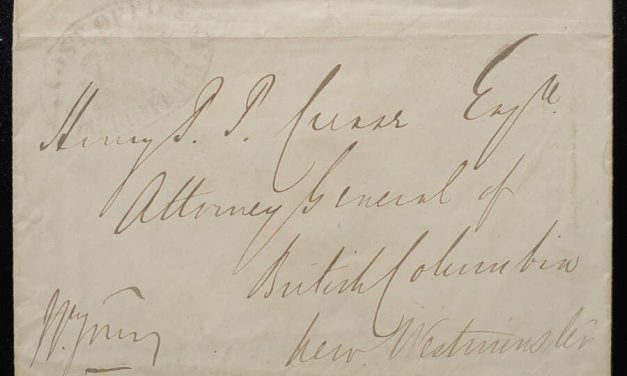 POST OFFICE
Henry P. P. Crease Esqre.
Attorney General of
British Columbia
New Westminster
Wm. Young